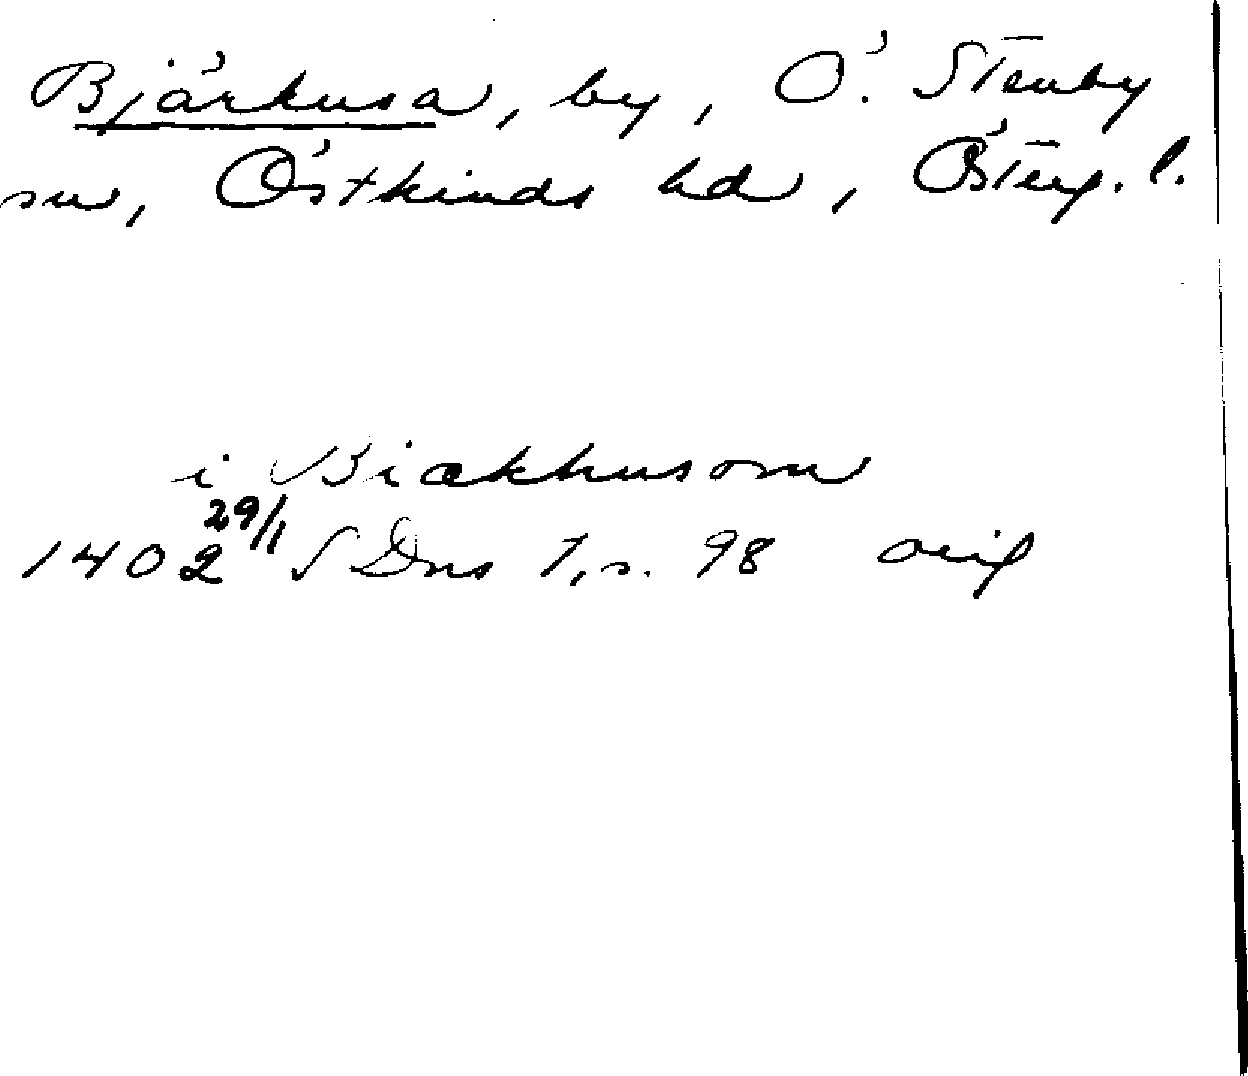 Bjärkusa, by, Ö. Stenby
sn, Östkinds hd, Österg. l.
i Biækhusom
1402 29/1 SDns 1, s. 98 orig